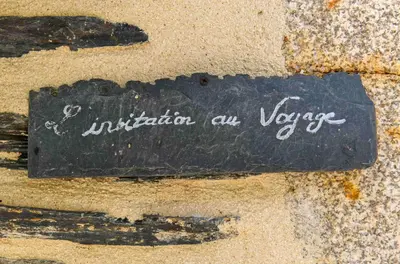 L'invitation au Voyage